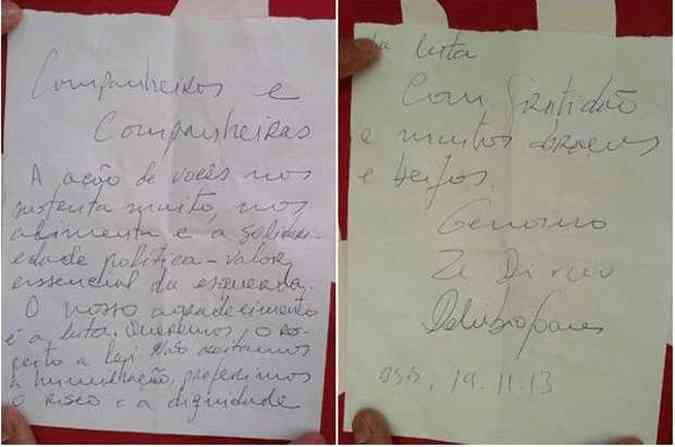 Companheiros e
Companheiras
A ação de vocês nos
sustenta muito, nos
alimenta e a solidari-
edade política - valor
essencial da esquerda.
O nosso agradecimento
é a luta. Queremos o res-
peito a lei não aceitamos
a humilhação, preferimos
o risco e a dignidade
da luta
Com gratidão
e muitos abraços
e beijos.
Genoino
Zé Dirceu
Delúbio Soares
BSB, 19.11.13